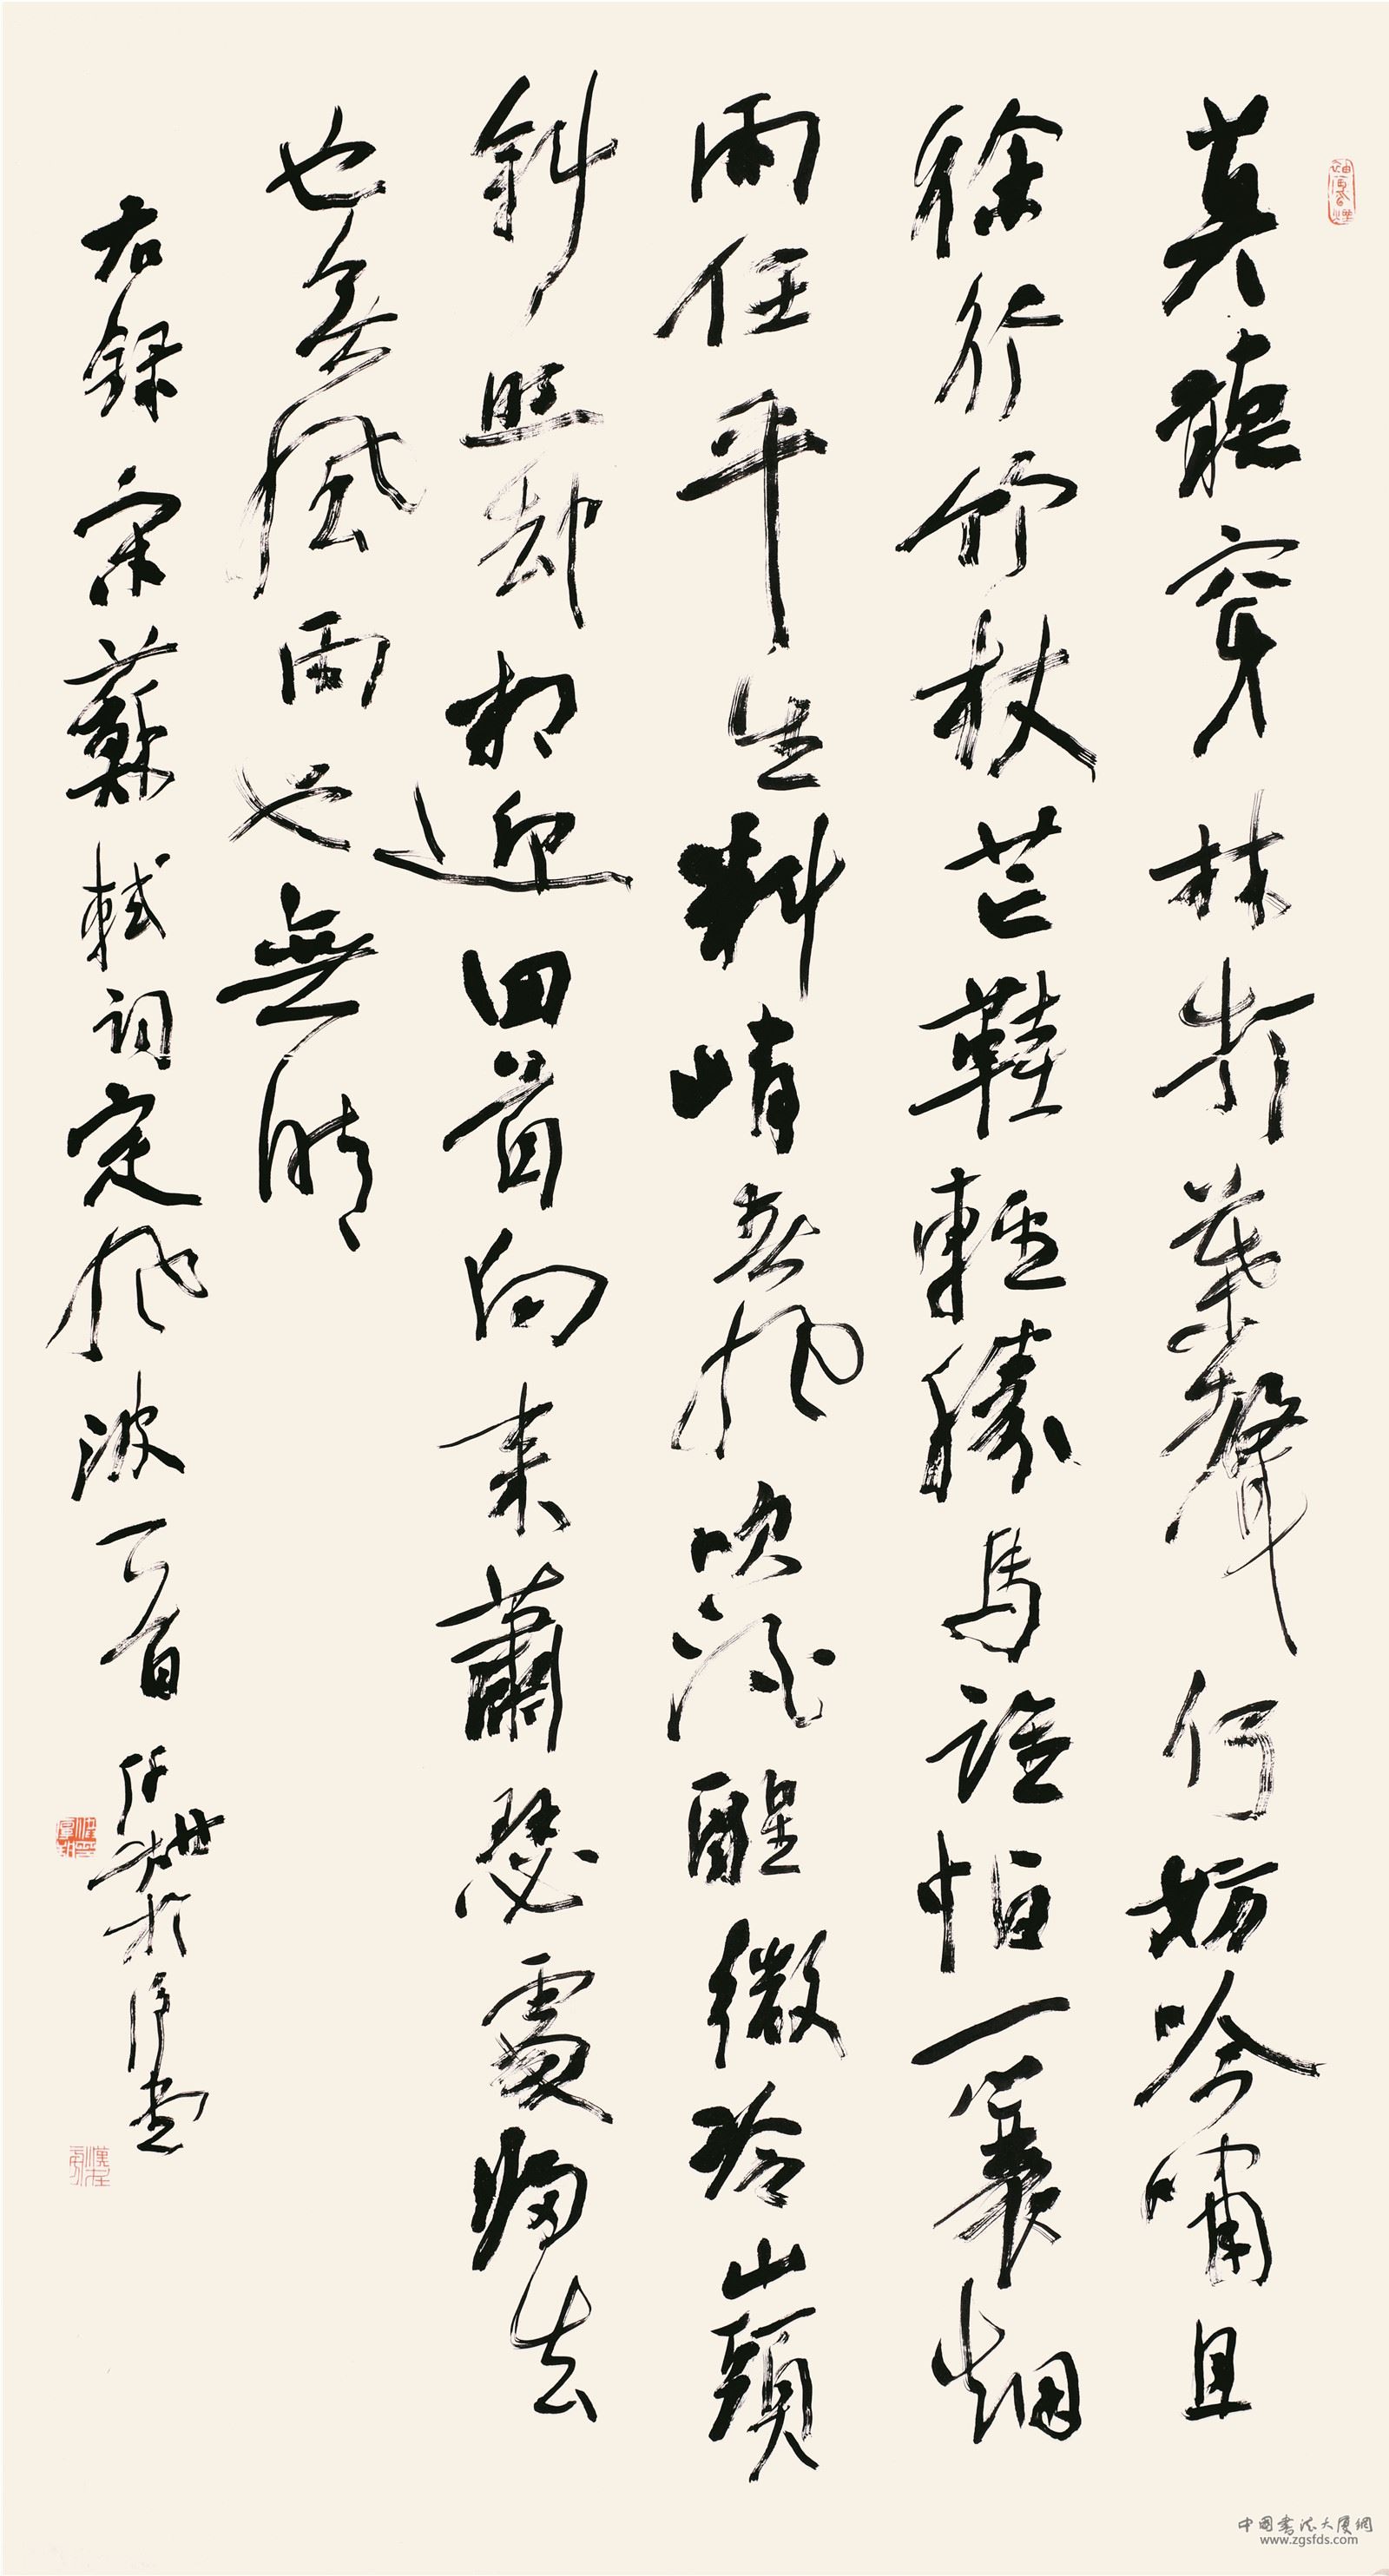 莫聽穿林打葉聲何妨吟嘯且
徐行竹杖芒鞋輕勝馬誰怕一蓑烟
雨任平生料峭春風吹酒醒微冷山頭
斜照却相迎回首向来蕭瑟處歸去
也無風雨也無晴
右録宋蘇軾詞定風波一首
中国書法大厦網
www.zgsfds.com